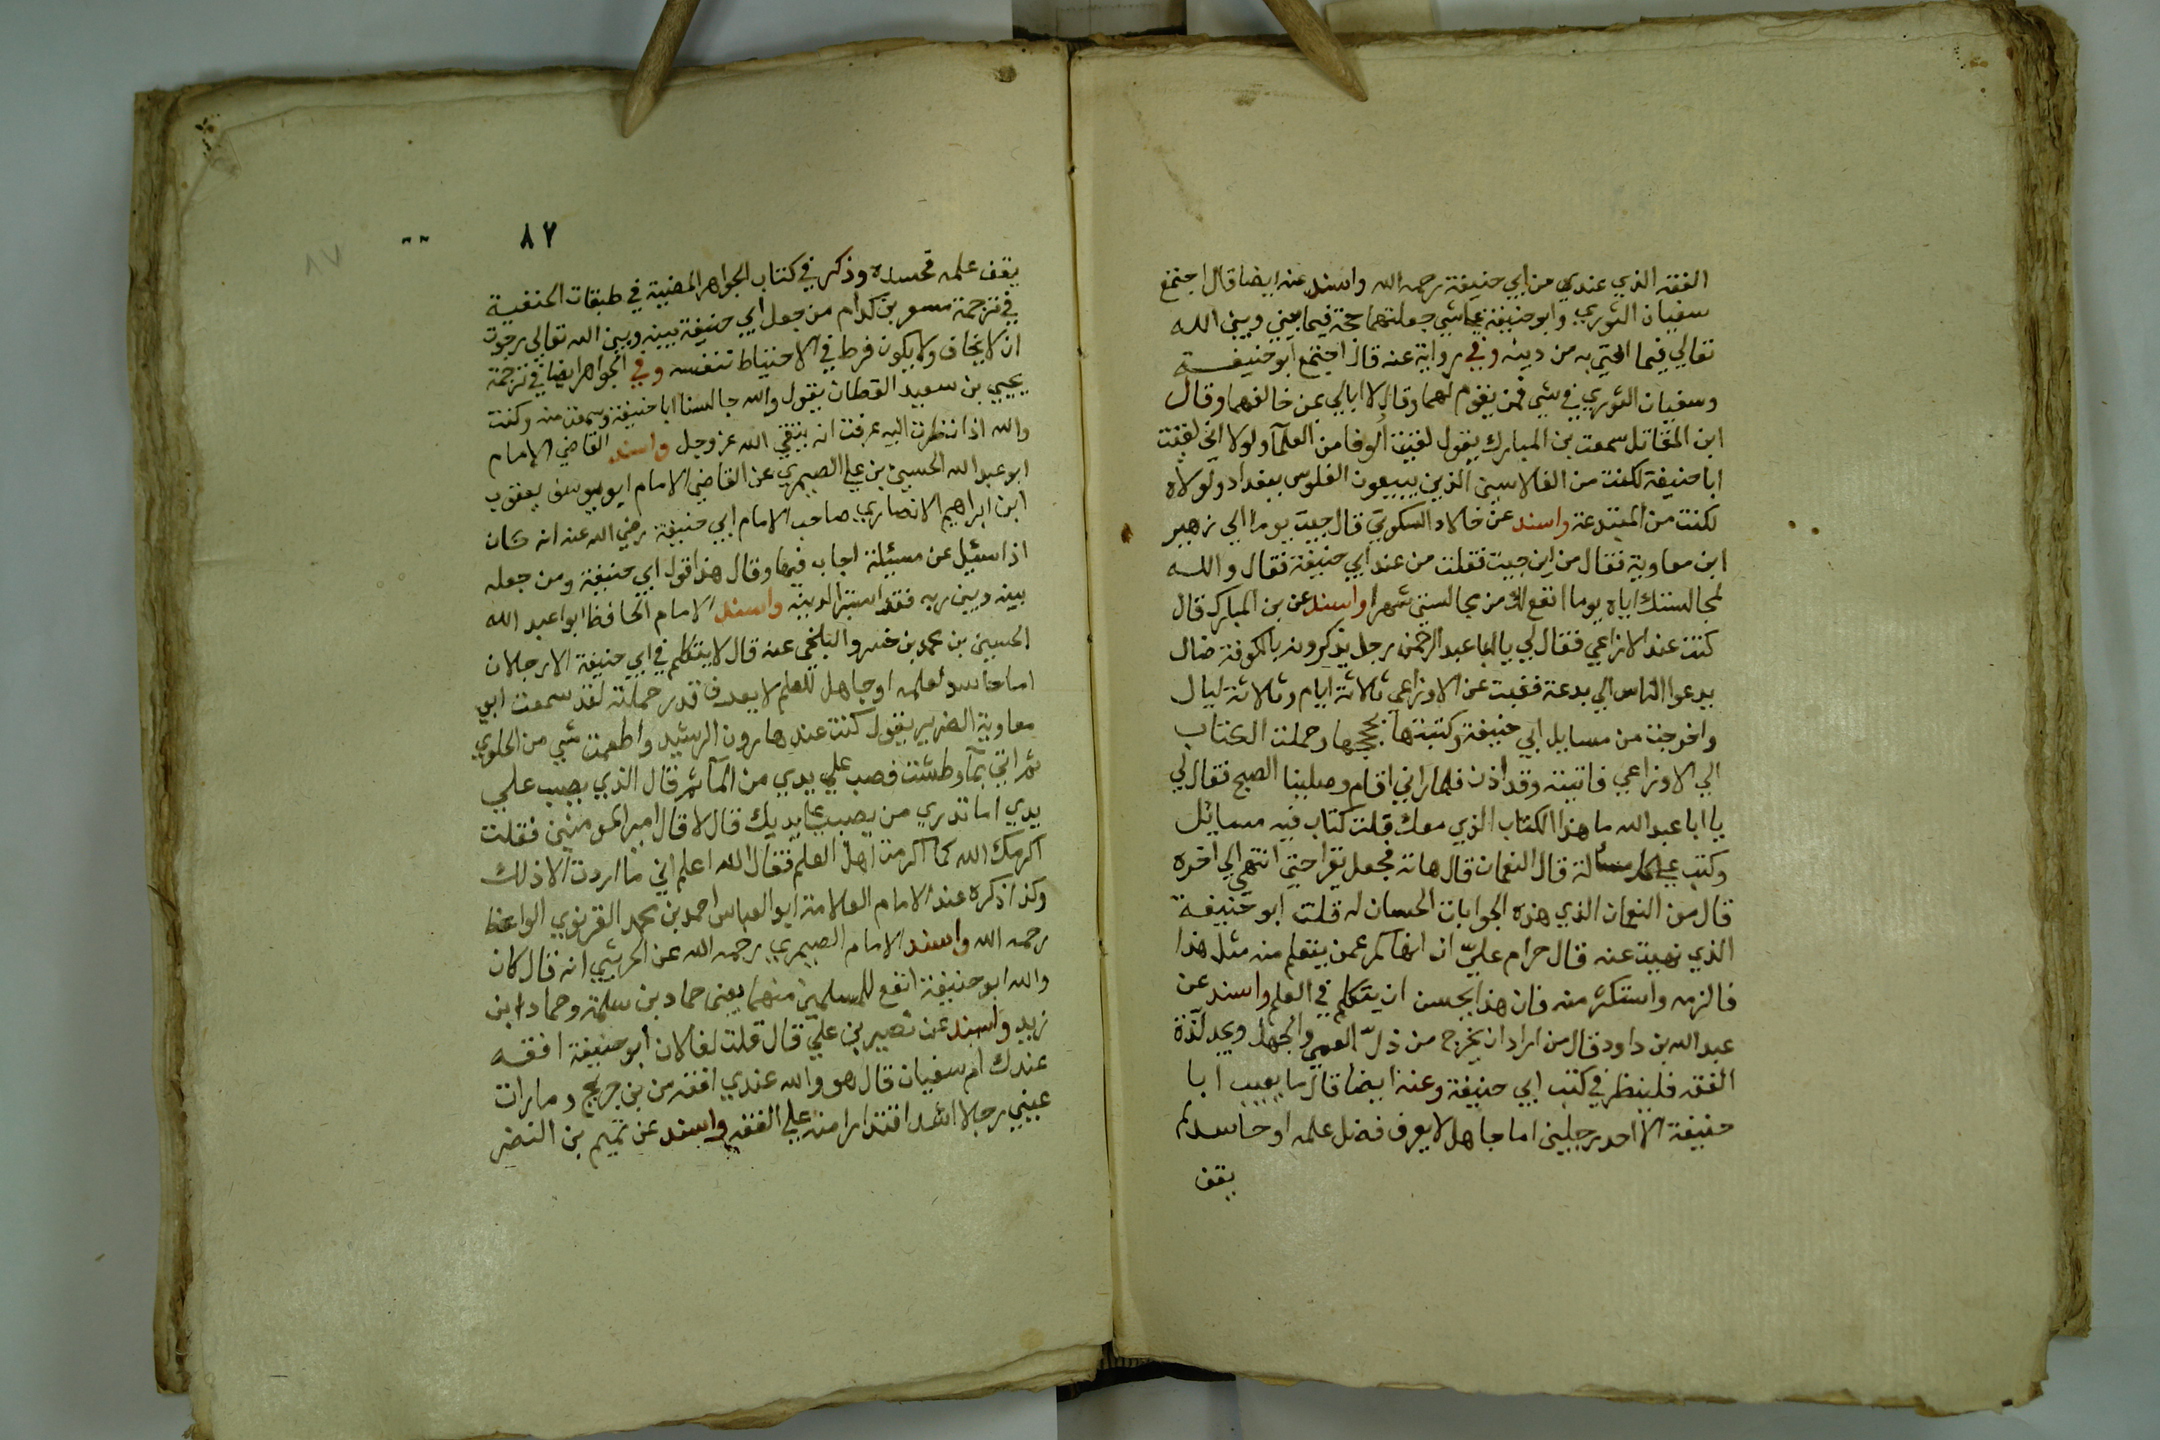 الفقه الذي عندي من ابي حنيفة رحمه الله واسند عنه ايضا قال اجتمع
سفيان الثوري وابو حنيفة علي شي جعلتهما حجة فيما بيني وبين الله
تعالي فيما افتي به من دينه وفي رواية عنه قال اجتمع ابو حنيفة
وسفيان الثوري في شي فمن يقوم لهما وقال لا ابالي عن خالفهما وقال
ابن المقاتل سمعت بن المبارك يقول لقيت الوفا من العلمآ ولولا اني لقيت
ابا حنيفة لكنت من الفلاسين الذين يبيعون الفلوس ببغداد ولولاه
لكنت من المبتدعة واسند عن خلاد السكوني قال جيت يوما الي زهير
ابن معاوية فقال من اين جيت فقلت من عند ابي حنيفة فقال والله
لمجالستك اياه يوما انفع لك من مجالستي شهرا واسند عن بن المبارك قال
كنت عند الاوزاعي فقال لي يا ابا عبد الرحمن رجل يذكرونه بالكوفة ضال
يدعوا الناس الي بدعة فغبت عن الاوزاعي ثلاثة ايام وثلاثة ليال
واخرجت من مسايل ابي حنيفة وكتبتها بحججها وحملت الكتاب
الي الاوزاعي فاتيته وقد اذن فلما راني اقام وصلينا الصبح فقال لي
يا ابا عبد الله ما هذا الكتاب الذي معك قلت كتاب فيه مسايل
وكتب علي كل مسالة قال النعمان قال هاته فجعل يقرا حتي انتهي الي اخره
قال من النعمان الذي هذه الجوابات الحسان له قلت ابو حنيفة
الذي نهيت عنه قال حرام عليّ ان انهاكم عمن يتعلم منه مثل هذا
فالزمه واستكثر منه فان هذا يحسن ان يتكلم في العلم واسند عن
عبد الله بن داود قال من اراد ان يخرج من ذلّ العمي والجهل ويجد لذة
الفقه فلينظر في كتب ابي حنيفة وعنه ايضا قال ما يعيب ابا
حنيفة الا احد رجلين اما جاهل لا يعرف فضل علمه او حاسد لم
يقف
٨٧
يقف علمه فحسده وذكر في كتاب الجواهر المضية في طبقات الحنفية
في ترجمة مسعر بن كدام من جعل ابي حنيفة بينه وبين الله تعالي رجوت
ان لا يخاف ولا يكون فرط في الاحتياط لنفسه وفي الجواهر ايضا في ترجمة
يحيي بن سعيد القطان يقول والله جالسنا ابا حنيفة وسمعت منه وكنت
والله اذا نظرت اليه عرفت انه يتقي الله عز وجل واسند القاضي الامام
ابو عبد الله الحسين بن علي الصيمري عن القاضي الامام ابو يوسف يعقوب
ابن ابراهيم الانصاري صاحب الامام ابي حنيفة رضي الله عنه انه كان
اذا سئيل عن مسئيلة اجاب فيها وقال هذا قول ابي حنيفة ومن جعله
بينه وبين ربه فقد استبرا لدينه واسند الامام الحافظ ابوا عبد الله
الحسين بن محمد بن خسرو البلخي عنه قال لا يتكلم في ابي حنيفة الا رجلان
اما حاسد لعلمه او جاهل للعلم لا يعرف قدر حملته لقد سمعت ابي
معاوية الضرير يقول كنت عند هارون الرشيد واطعمت شي من الحلوي
ثم اتي بمآ وطشت فصب علي يدي من المآ ثم قال الذي يصب علي
يدي اما تدري من يصب علي يديك قال لا قال امير المومنين فقلت
اكرمك الله كما اكرمت اهل العلم فقال الله اعلم اني ما اردت الا ذلك
وكذا ذكره عند الامام العلامة ابو العباس احمد بن محمد القزنوي الواعظ
رحمه الله واسند الامام الصيمري رحمه الله عن الحرشي انه قال كان
والله ابو حنيفة انفع للمسلمين منهما يعني حماد بن سلمة وحماد ابن
زيد واسند عن نصير بن علي قال قلت لفلان ابو حنيفة افقه
عندك ام سفيان قال هو والله عندي افقه من بن جريج وما رات
عيني رجلا اشد اقتدارا منه علي الفقه واسند عن تميم بن النضر